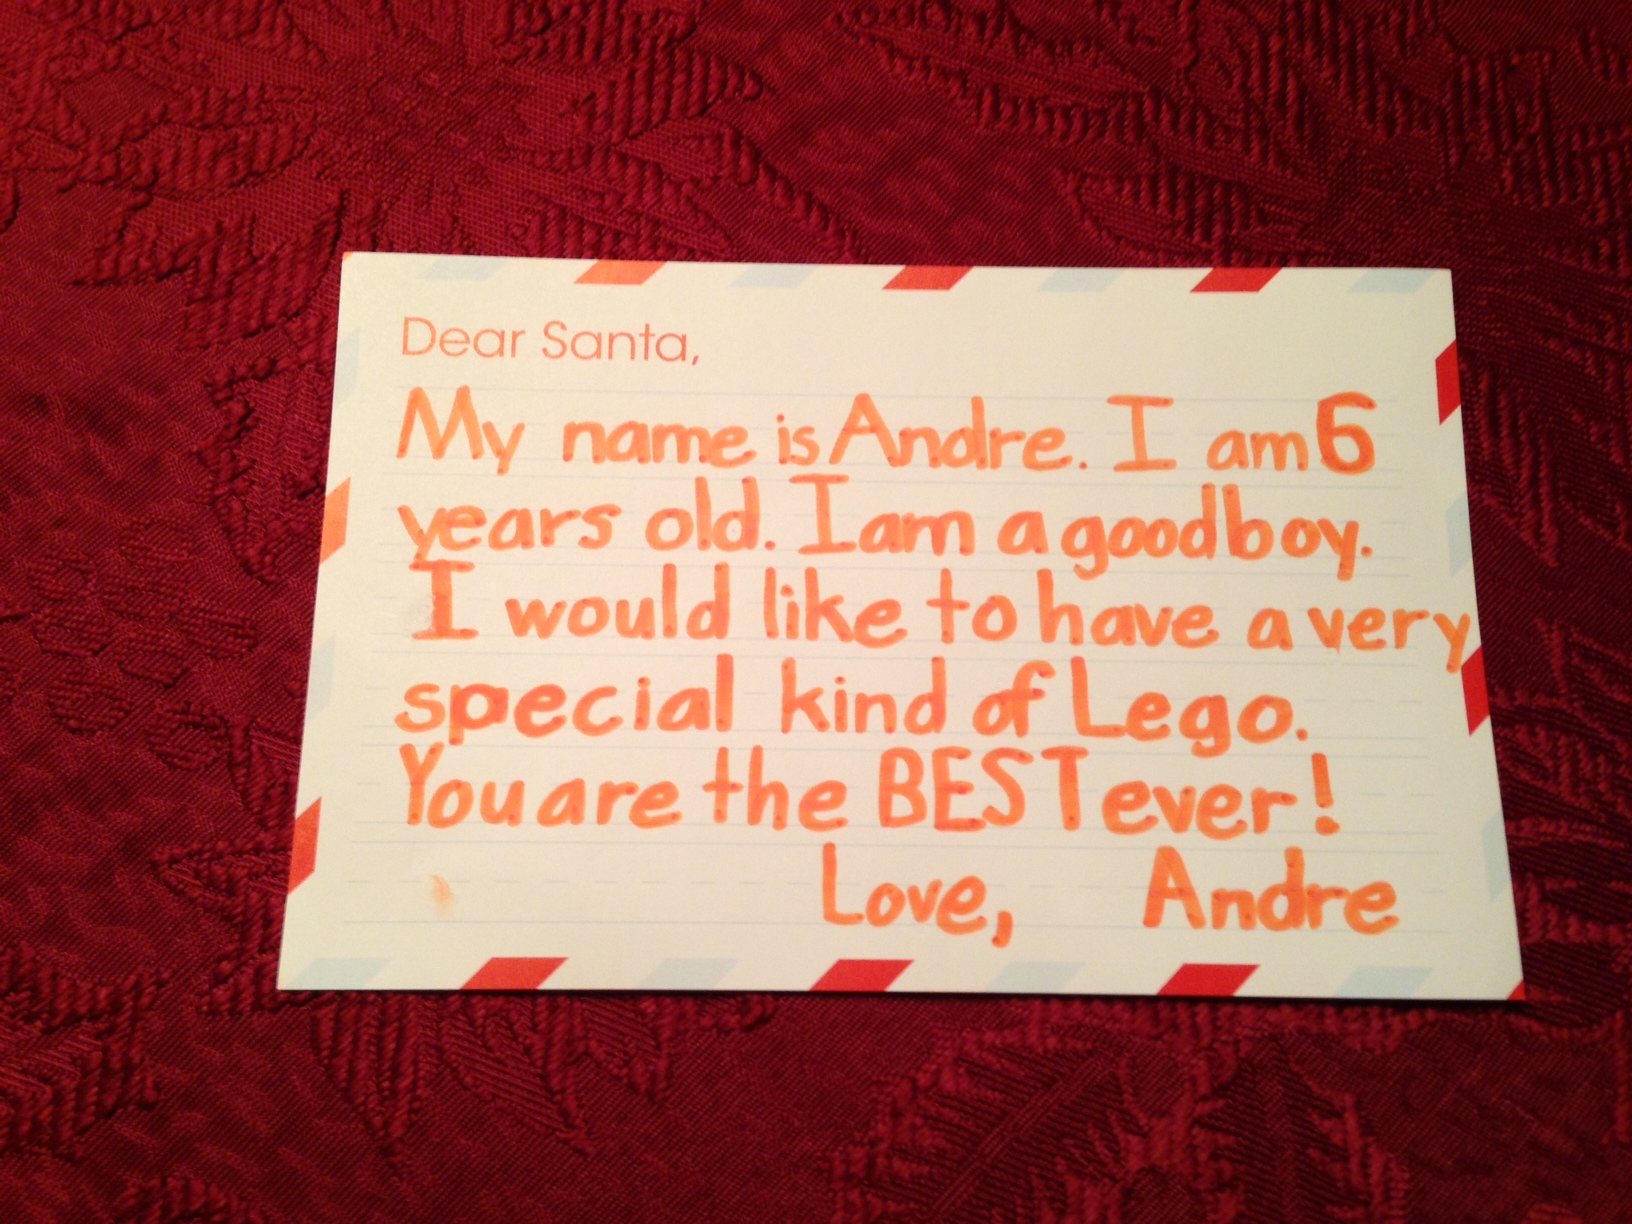 Dear Santa,
My name is Andre. I am 6
years old. I am a good boy.
I would like to have a very
special kind of Lego.
You are the BEST ever!
Love, Andre